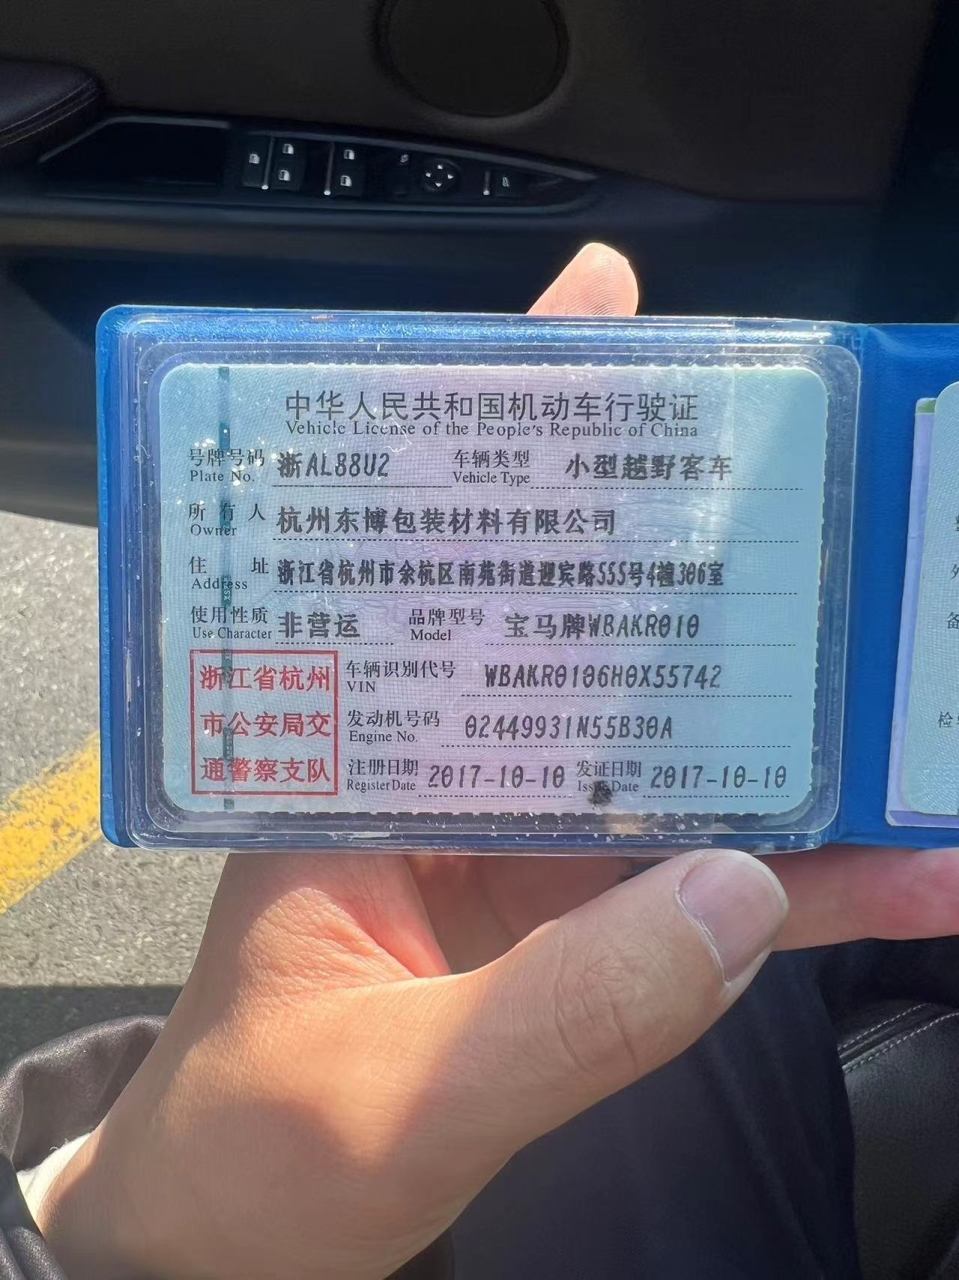 中华人民共和国机动车行驶证
Vehicle License of the People's Republic of China
号牌号码 浙AL88U2 车辆类型 小型越野客车
Plate No. Vehicle Type
所有人 杭州东博包装材料有限公司
Owner
住址 浙江省杭州市余杭区南苑街道迎宾路555号4幢306室
Address
使用性质 非营运 品牌型号 宝马牌WBAKR010
Use Character Model
浙江省杭州
市公安局交
通警察支队
车辆识别代号 WBAKR0106H0X55742
VIN
发动机号码 02449931N55B30A
Engine No.
注册日期 2017-10-10 发证日期 2017-10-10
Register Date Issue Date
备
检